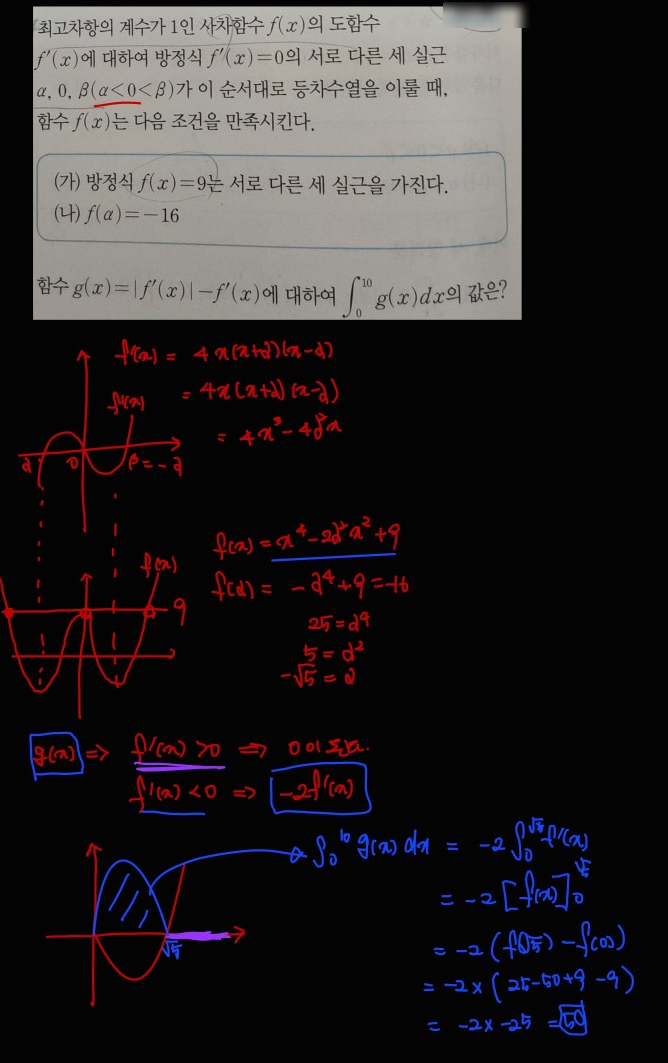 최고차항의 계수가 1인 사차함수 f(x)의 도함수
f'(x)에 대하여 방정식 f'(x)=0의 서로 다른 세 실근
α, 0, β(α<0<β)가 이 순서대로 등차수열을 이룰 때,
함수 f(x)는 다음 조건을 만족시킨다.
(가) 방정식 f(x)=9는 서로 다른 세 실근을 가진다.
(나) f(α)=-16
함수 g(x)=|f'(x)|-f'(x)에 대하여 ∫₀¹⁰ g(x)dx의 값은?
f'(x) = 4x(x+α)(x-α)
= 4x(x+α)(x-α)
= 4x³-4α²x
f'(x)
α 0 β=-α
f(x) = x⁴-2α²x²+9
f(α) = -α⁴+9=-16
25=α⁴
5=α²
-√5=α
f(x)
9
g(x) ⇒ f'(x)>0 ⇒ 0이 된다.
f'(x)<0 ⇒ -2f'(x)
√5
∫₀¹⁰ g(x)dx = -2∫₀^√5 f'(x)
= -2[f(x)]₀^√5
= -2(f(√5)-f(0))
= -2×(25-50+9-9)
= -2×-25=50